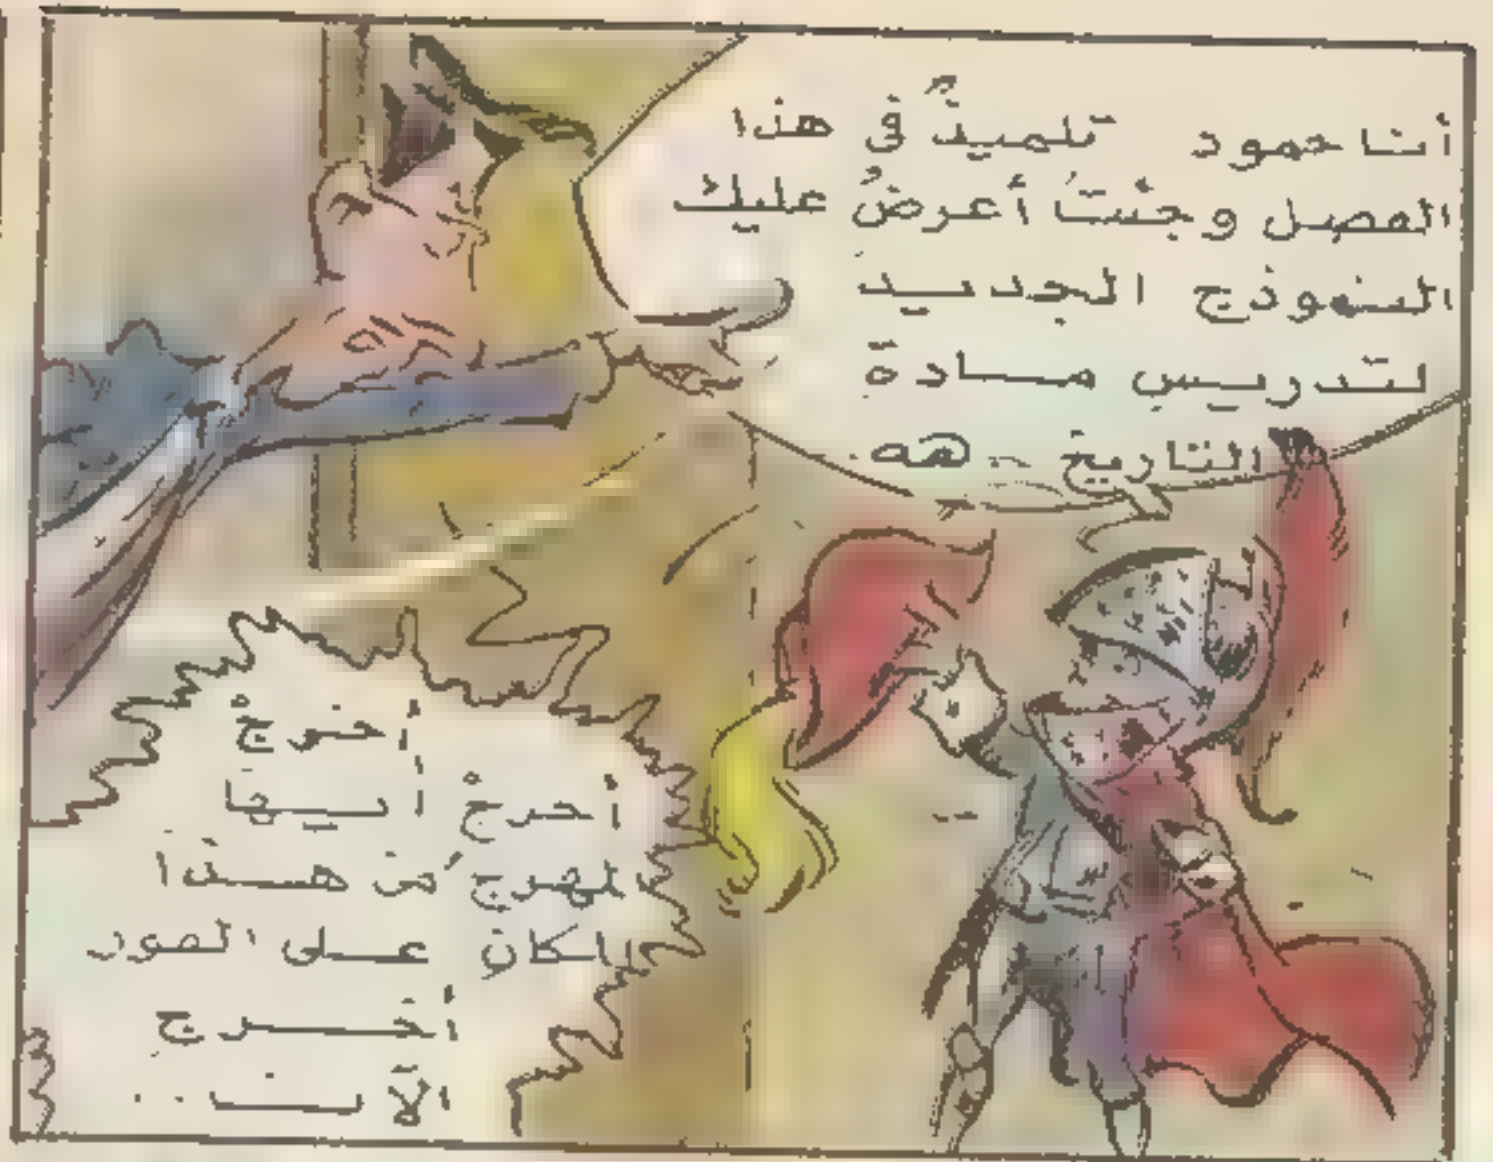 أنا حمود تلميذٌ في هذا
الفصل وجئتُ أعرضُ عليك
النموذج الجديد
لتدريس مادة
التاريخ هه
أخرجْ
أخرجْ أيها
المهرج من هذا
المكان على الفور
أخرج
الآن..